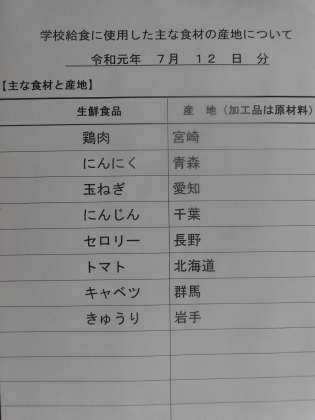 学校給食に使用した主な食材の産地について
令和元年 7月 12 日 分
【主な食材と産地】
生鮮食品 産 地（加工品は原材料）
鶏肉 宮崎
にんにく 青森
玉ねぎ 愛知
にんじん 千葉
セロリー 長野
トマト 北海道
キャベツ 群馬
きゅうり 岩手